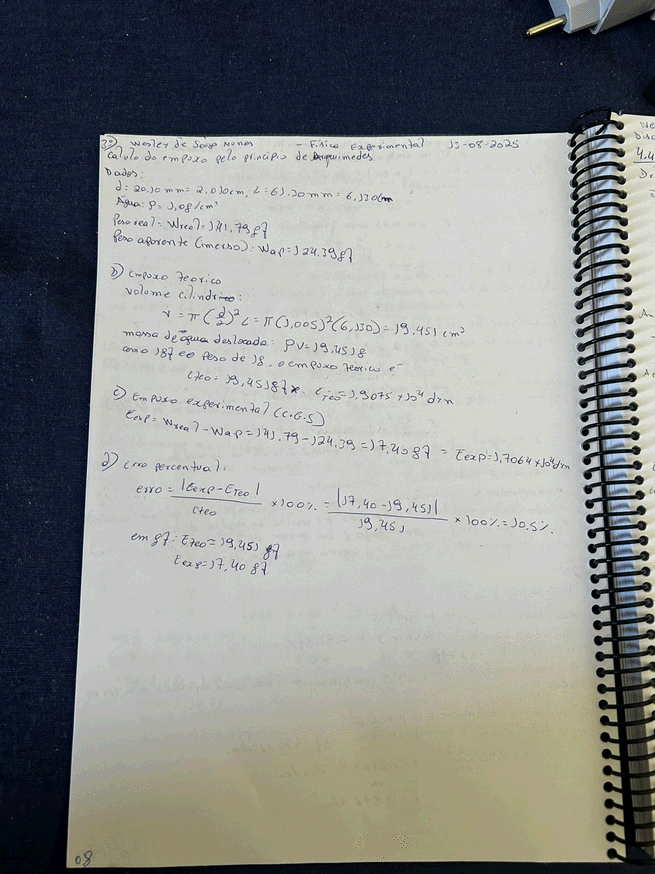 3º) Wesley de Souza Nunes - Física Experimental 13-08-2025
Cálculo do empuxo pelo princípio de Arquimedes
Dados:
d = 20.10 mm = 2.010 cm, L = 61.30 mm = 6,130 cm
Água: ρ = 1,0 g/cm³
Peso real - Wreal = 141.79 gf
Peso aparente (imerso): Wap = 124.39 gf
b) Empuxo teórico
Volume cilindro:
V = π(d/2)² L = π(1,005)²(6,130) = 19,451 cm³
massa de água deslocada: ρV = 19,451 g
como 1 gf é o peso de 1g. o empuxo teórico é
Eteo = 19,451 gf. Eteo = 1,9075 × 10⁴ dyn
c) Empuxo experimental (C.G.S)
Eexp = Wreal - Wap = 141,79 - 124,39 = 17,40 gf = Eexp = 1,7064 × 10⁴ dyn
d) Erro percentual:
erro = |Eexp - Eteo| / Eteo × 100% = |17,40 - 19,451| / 19,451 × 100% = 10.5%.
em gf: Eteo = 19,451 gf
Eexp = 17,40 gf
08
4.4